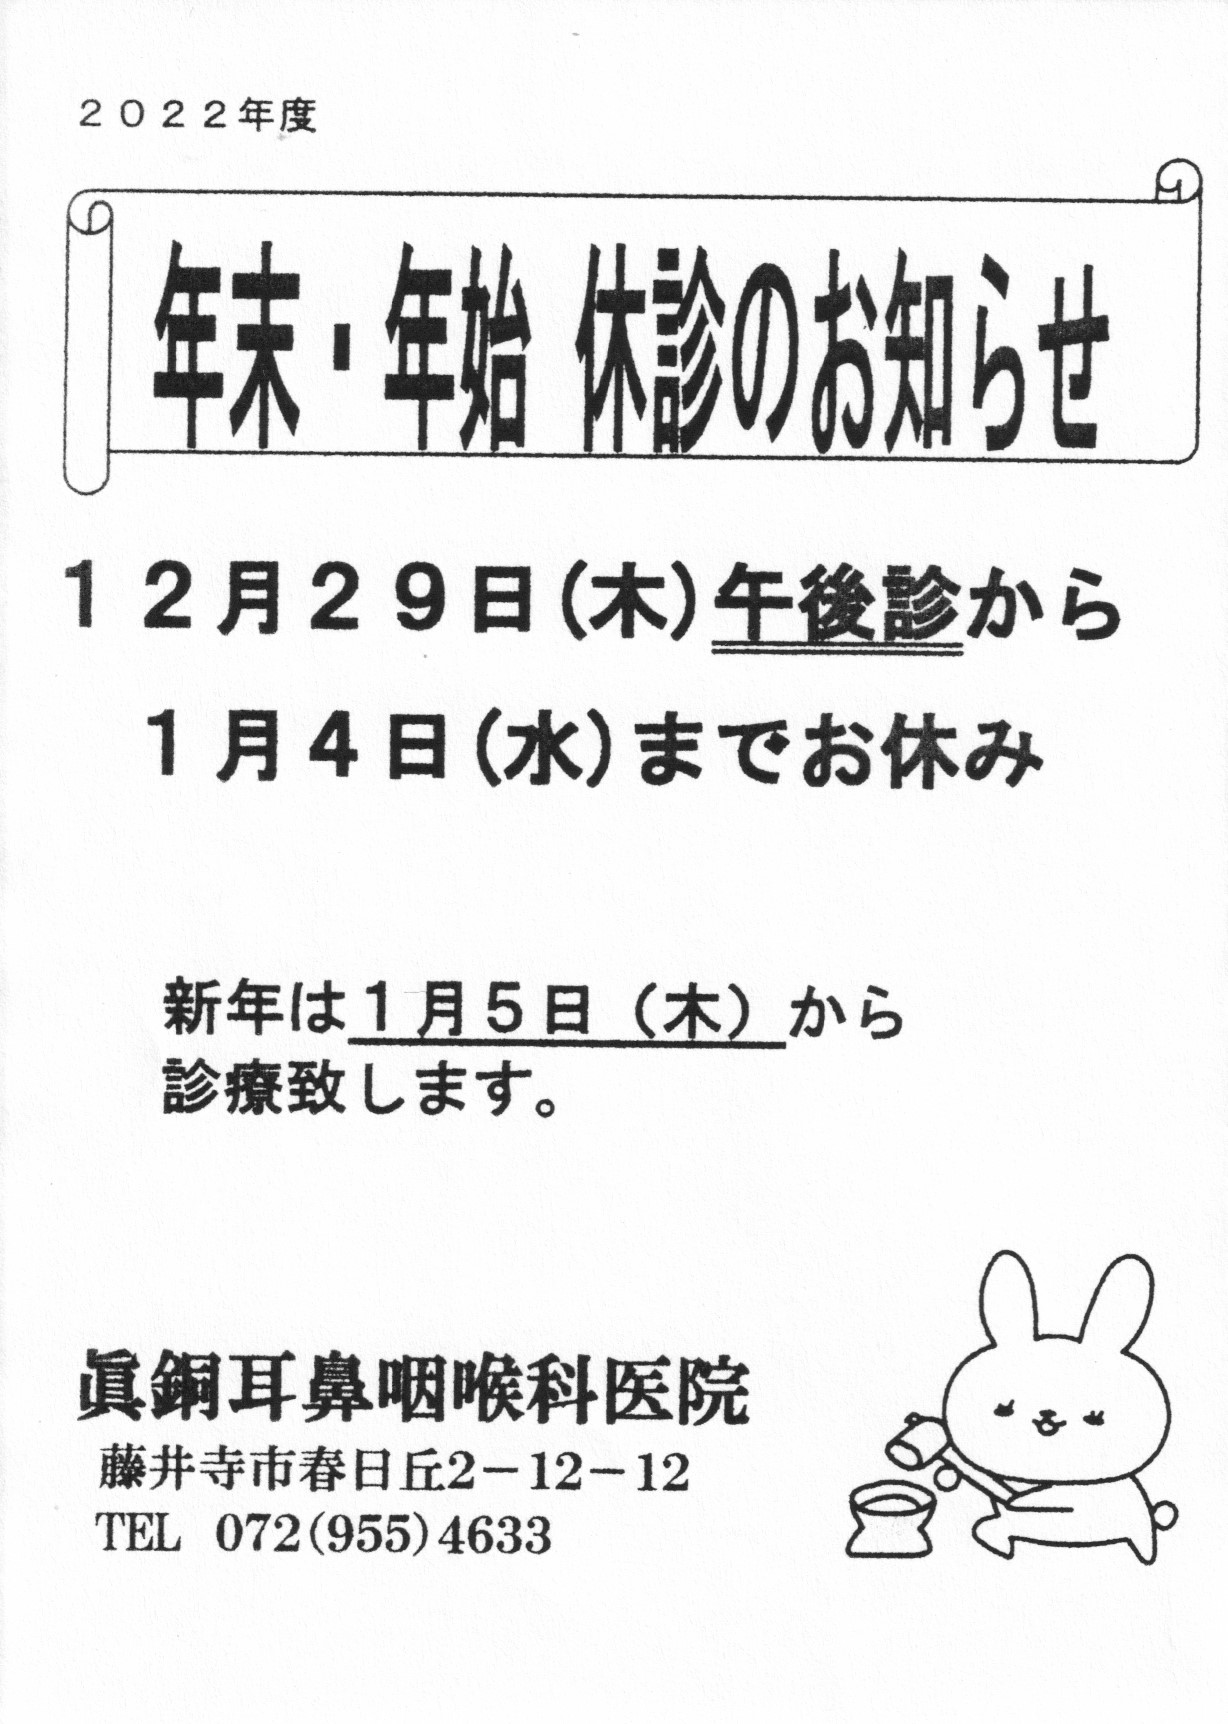 ２０２２年度
年末・年始 休診のお知らせ
１２月２９日(木)午後診から
１月４日(水)までお休み
新年は１月５日（木）から
診療致します。
眞銅耳鼻咽喉科医院
藤井寺市春日丘2－12－12
TEL 072(955)4633